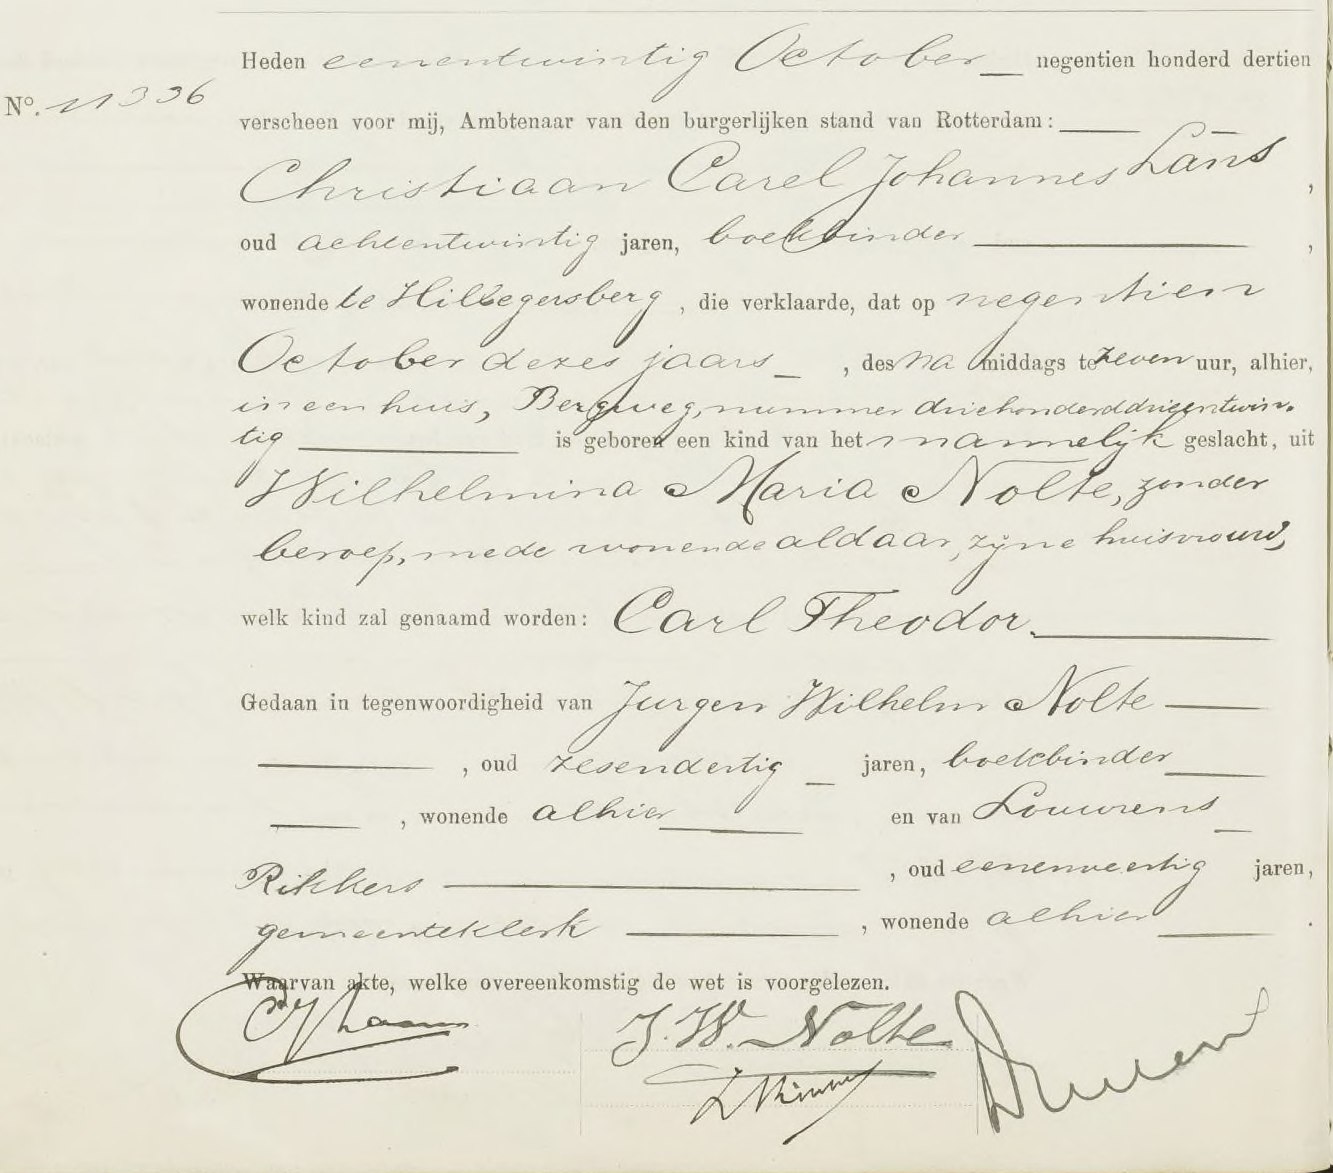 Heden eenentwintig October negentien honderd dertien
No. 11336
verscheen voor mij, Ambtenaar van den burgerlijken stand van Rotterdam:
Christiaan Carel Johannes Lans,
oud achtentwintig jaren, boekbinder,
wonende te Hillegersberg, die verklaarde, dat op negentien
October dezes jaars, des na middags te zeven uur, alhier,
in een huis, Bergweg, nummer driehonderddrieentwin-
tig is geboren een kind van het mannelijk geslacht, uit
Wilhelmina Maria Nolte, zonder
beroep, mede wonende aldaar, zijne huisvrouw,
welk kind zal genaamd worden: Carl Theodor.
Gedaan in tegenwoordigheid van Jurgen Wilhelm Nolte
, oud zesendertig jaren, boekbinder
, wonende alhier en van Louwrens
Rikkers, oud eenenveertig jaren,
gemeenteklerk, wonende alhier.
Waarvan akte, welke overeenkomstig de wet is voorgelezen.
J. W. Nolte